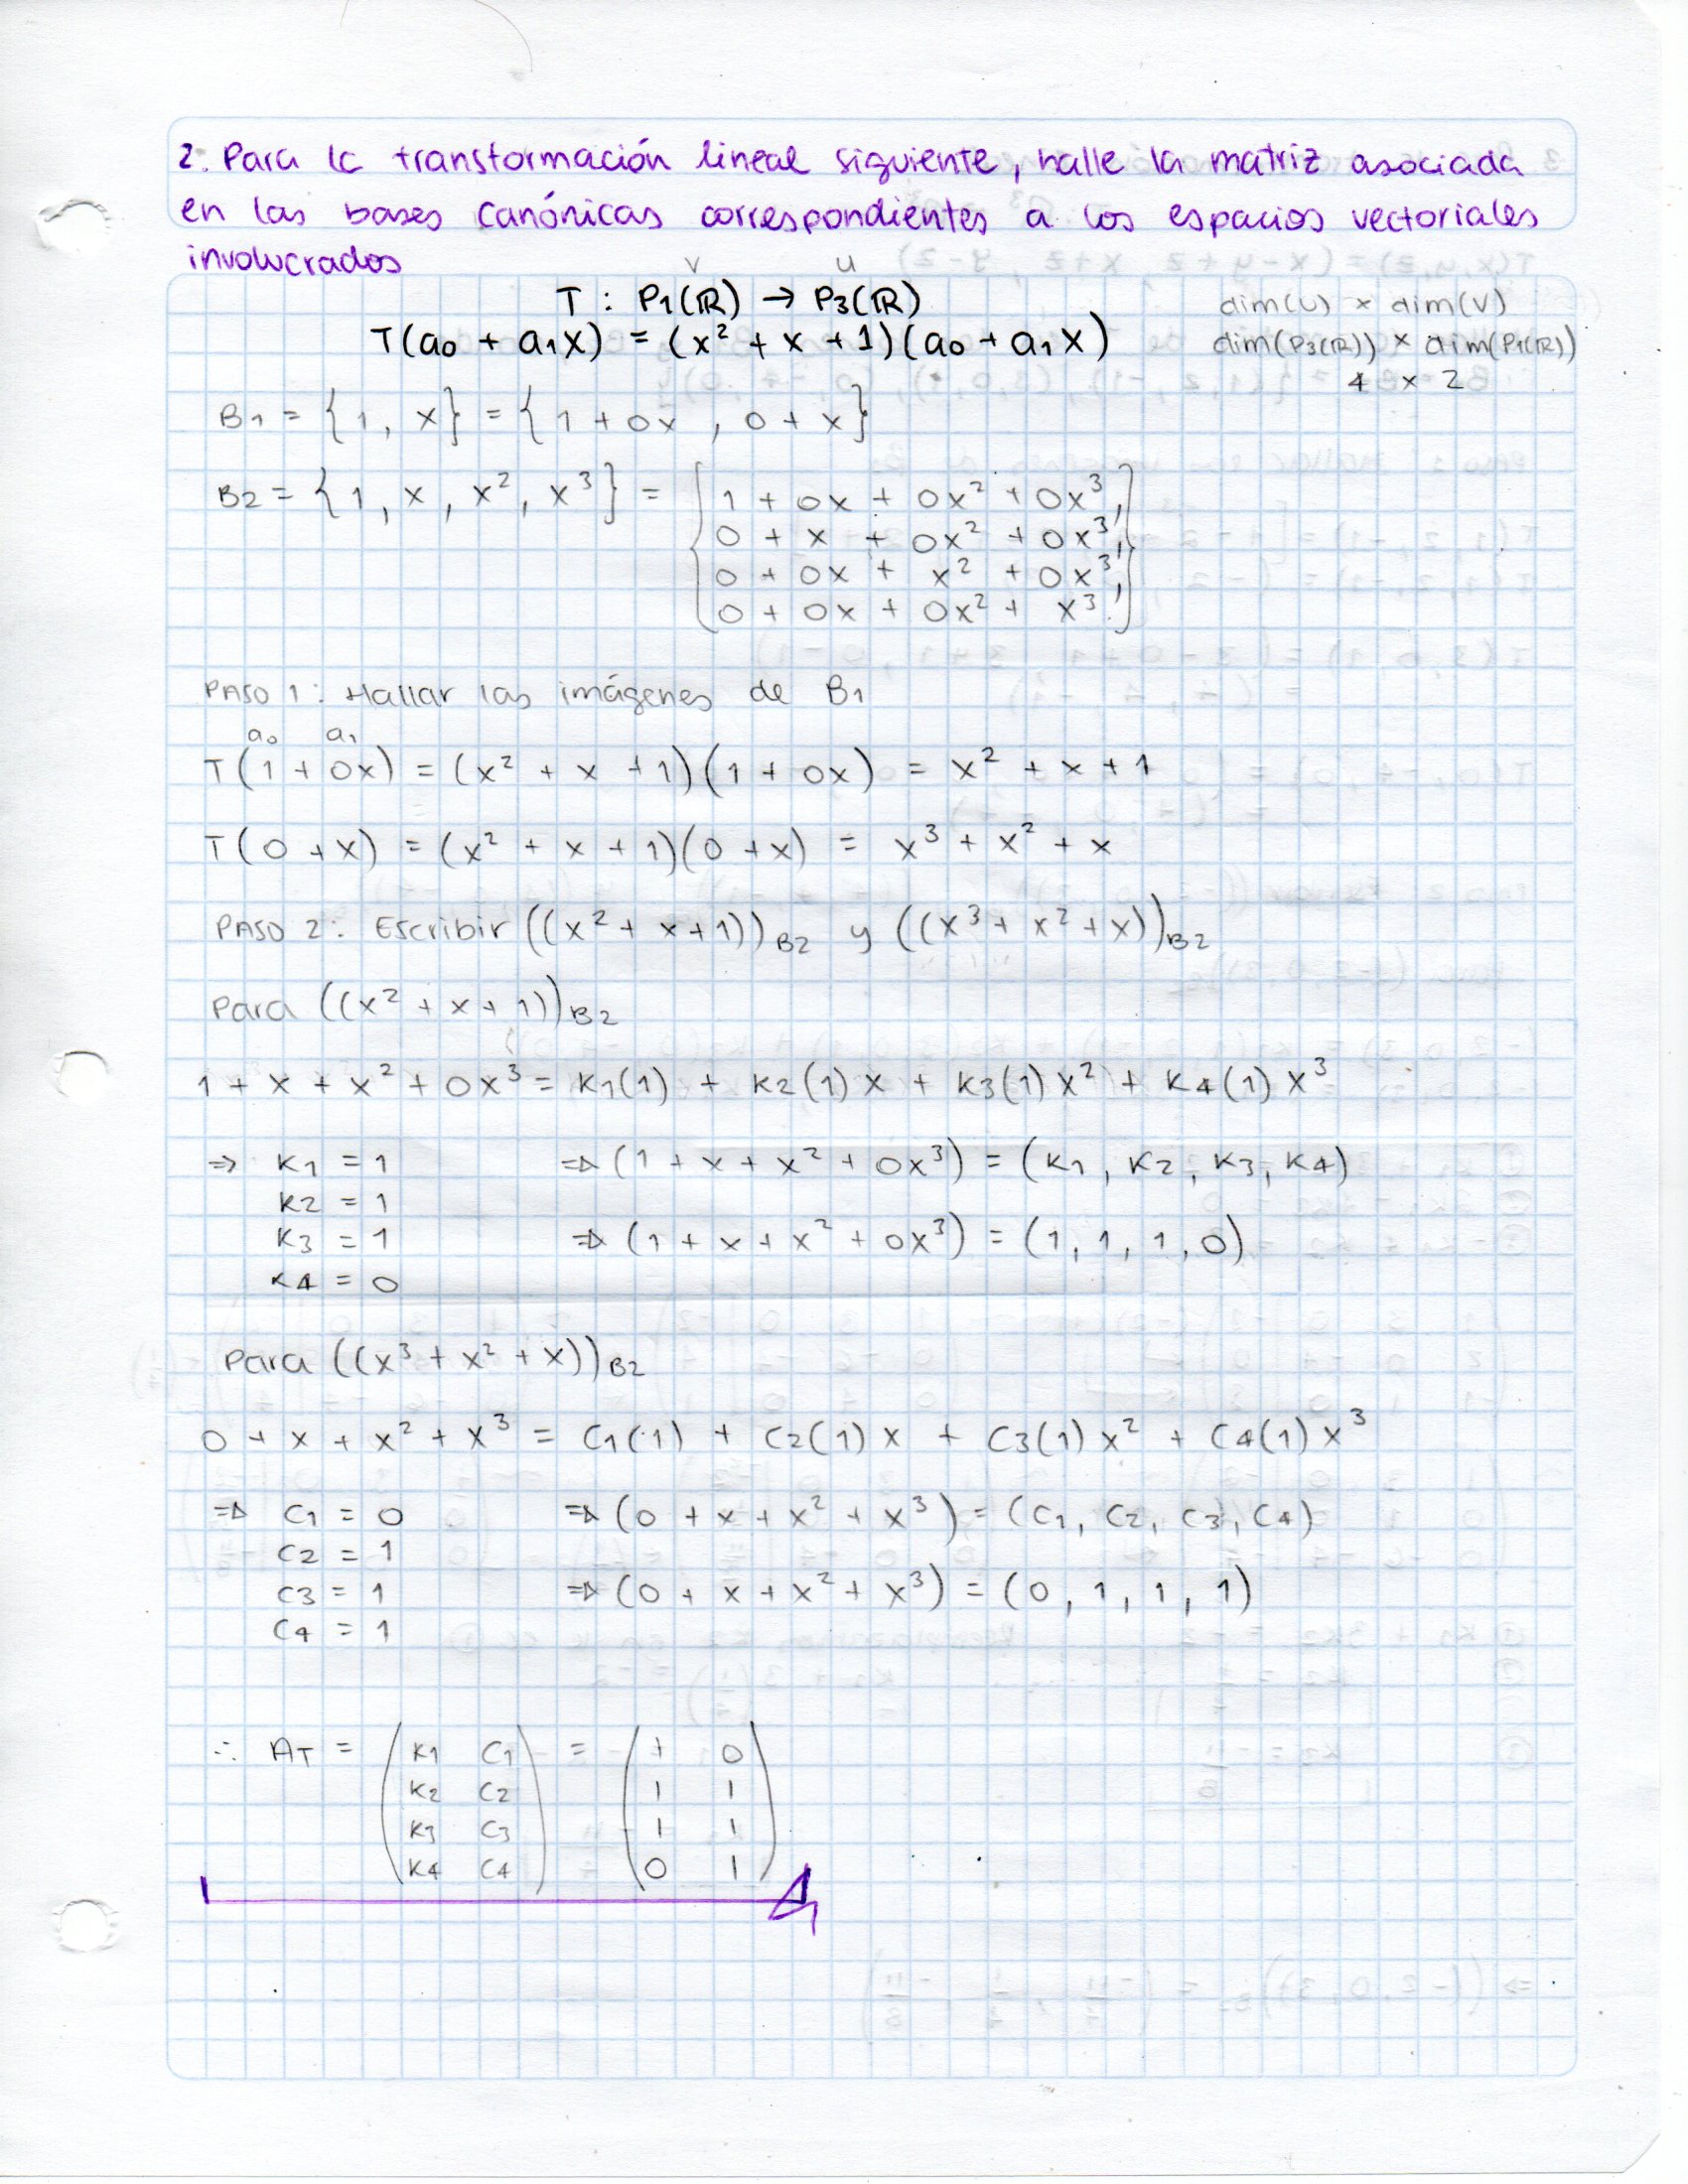 2. Para la transformación lineal siguiente, halle la matriz asociada
en las bases canónicas correspondientes a los espacios vectoriales
involucrados
V U
T : P1(ℝ) → P3(ℝ)
dim(U) × dim(V)
T(a0 + a1x) = (x² + x + 1)(a0 + a1x)
dim(P3(ℝ)) × dim(P1(ℝ))
4 × 2
B1 = {1, x} = {1 + 0x, 0 + x}
B2 = {1, x, x², x³} = {1 + 0x + 0x² + 0x³,
0 + x + 0x² + 0x³,
0 + 0x + x² + 0x³,
0 + 0x + 0x² + x³.}
PASO 1: Hallar las imágenes de B1
a0 a1
T(1 + 0x) = (x² + x + 1)(1 + 0x) = x² + x + 1
T(0 + x) = (x² + x + 1)(0 + x) = x³ + x² + x
PASO 2: Escribir ((x² + x + 1))B2 y ((x³ + x² + x))B2
Para ((x² + x + 1))B2
1 + x + x² + 0x³ = K1(1) + K2(1)x + K3(1)x² + K4(1)x³
⇒ K1 = 1 ⇒ (1 + x + x² + 0x³) = (K1, K2, K3, K4)
K2 = 1
K3 = 1 ⇒ (1 + x + x² + 0x³) = (1, 1, 1, 0)
K4 = 0
Para ((x³ + x² + x))B2
0 + x + x² + x³ = C1(1) + C2(1)x + C3(1)x² + C4(1)x³
⇒ C1 = 0 ⇒ (0 + x + x² + x³) = (C1, C2, C3, C4)
C2 = 1
C3 = 1 ⇒ (0 + x + x² + x³) = (0, 1, 1, 1)
C4 = 1
∴ AT = (K1 C1 = (1 0
K2 C2 1 1
K3 C3 1 1
K4 C4) 0 1)